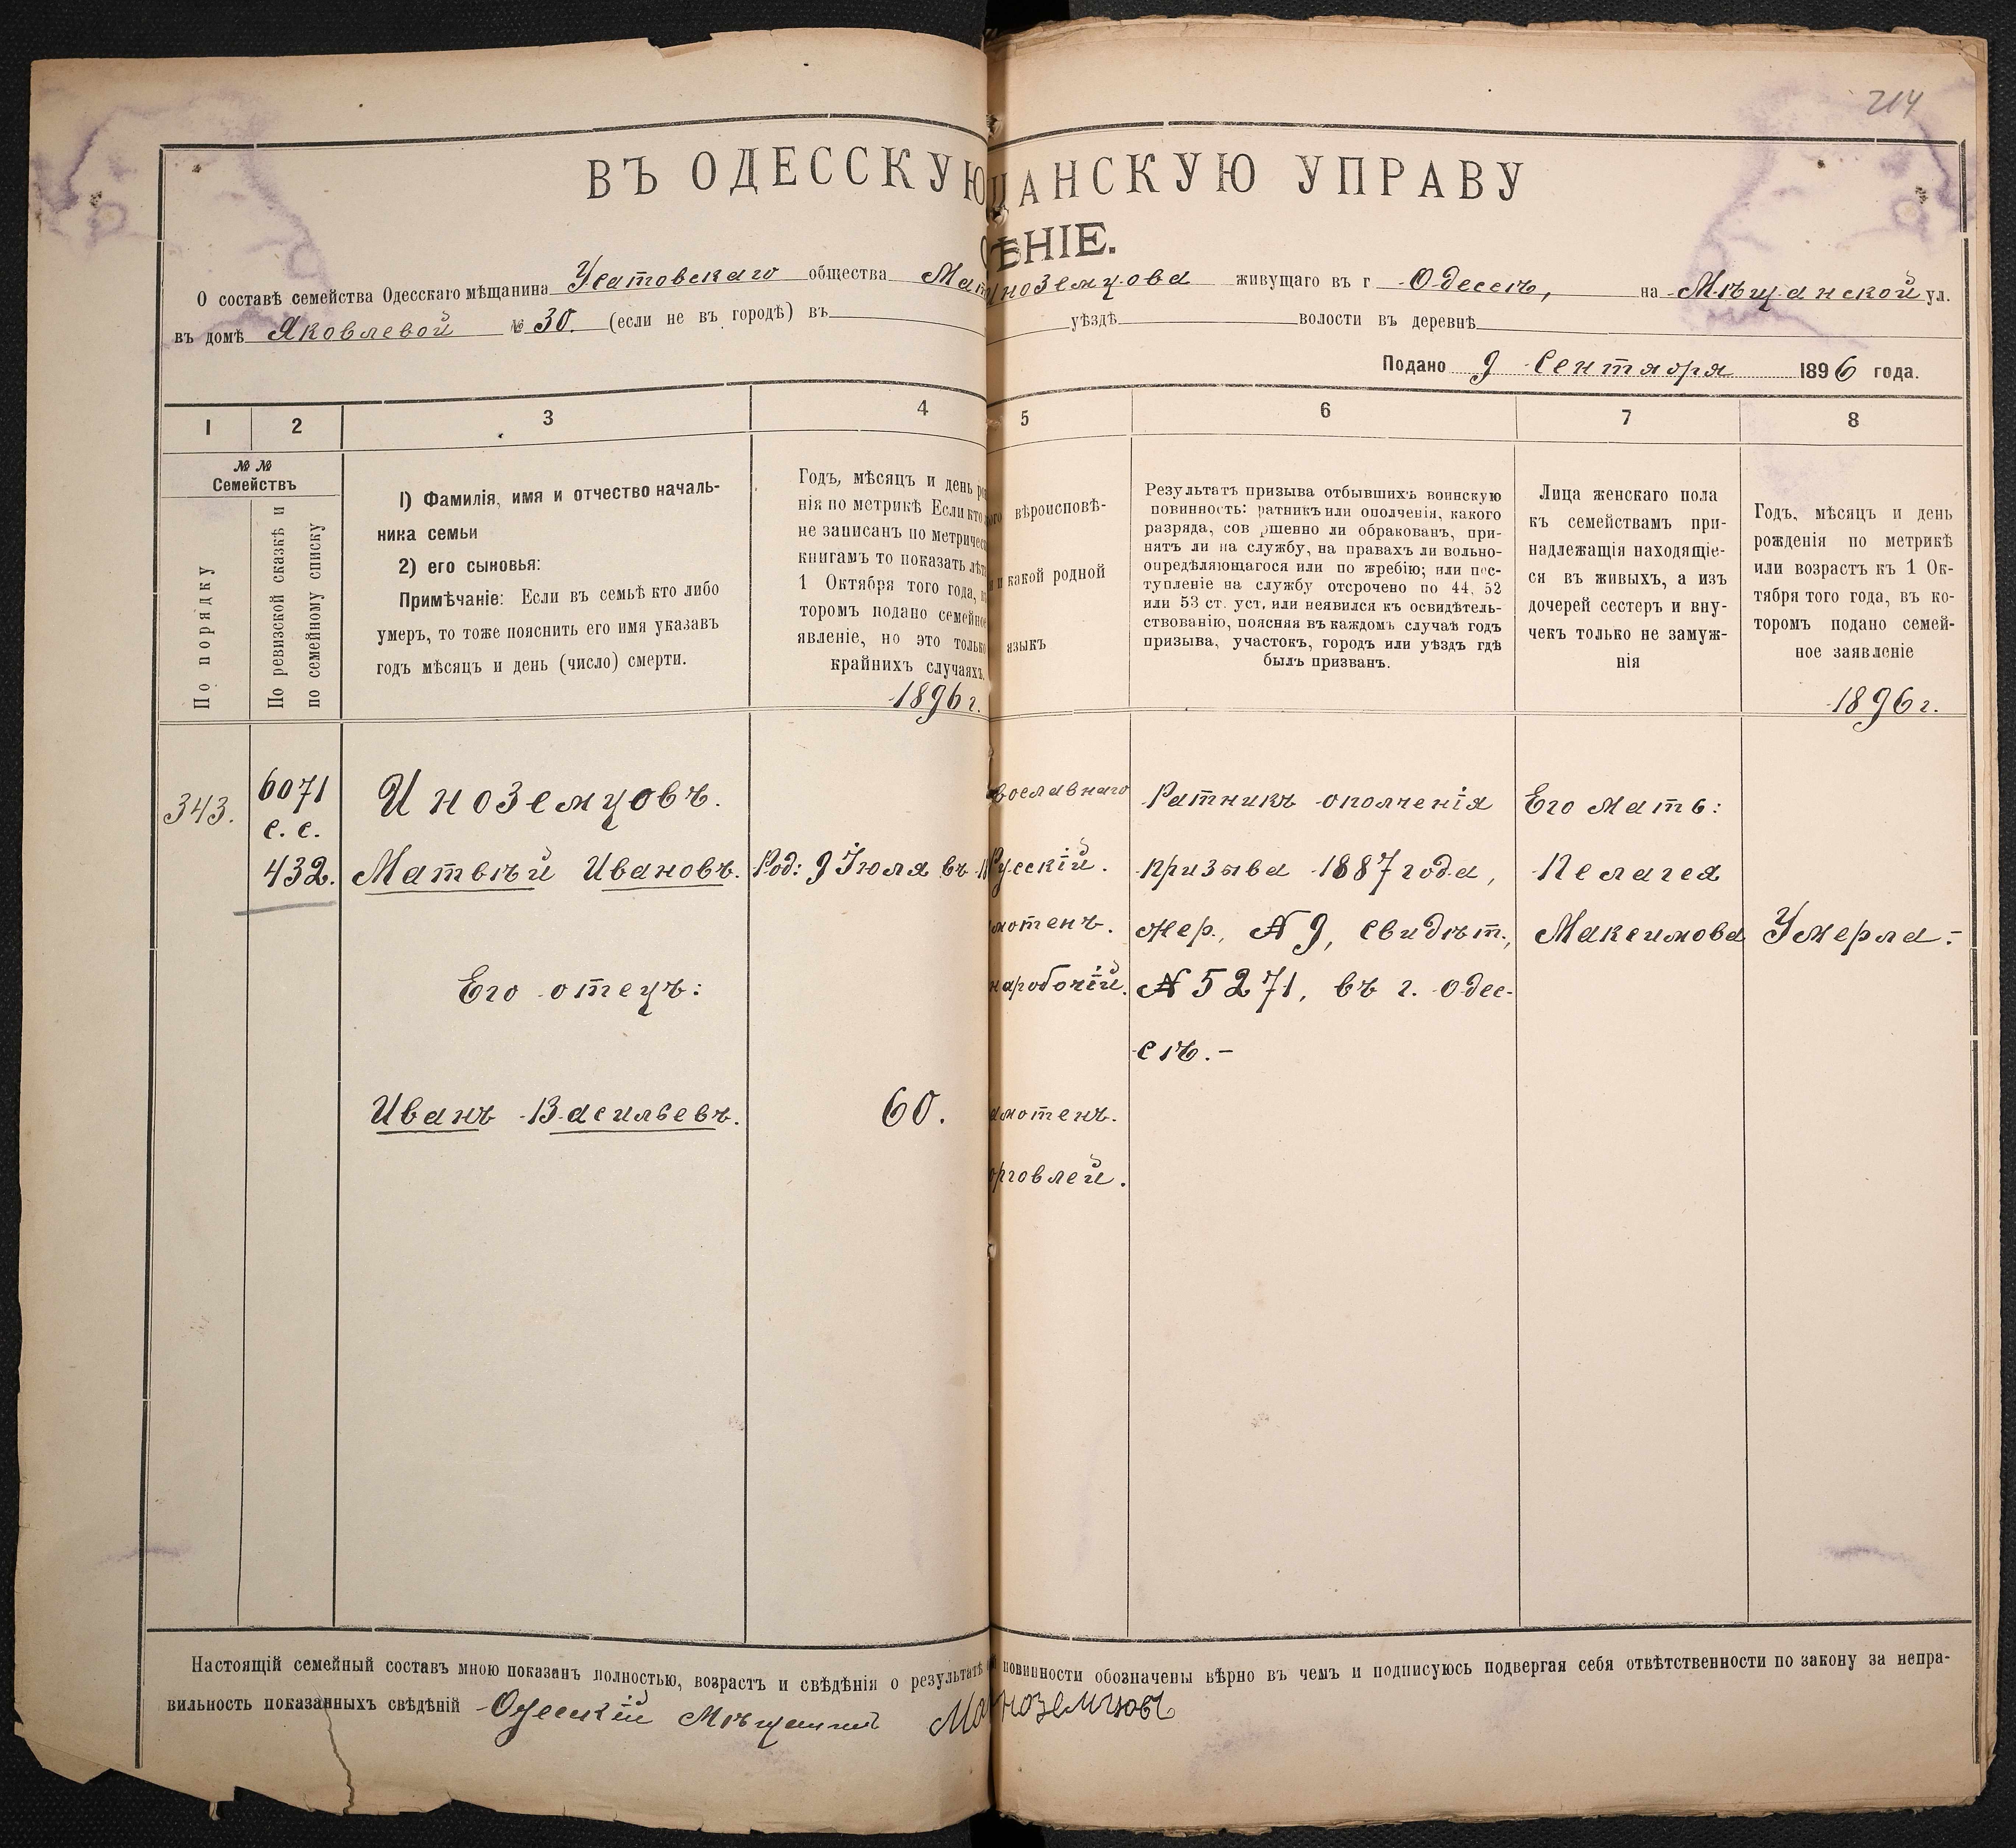 214
ВЪ ОДЕССКУЮ ЩАНСКУЮ УПРАВУ
ѢНІЕ.
О составѣ семейства Одесскаго мѣщанина Усатовскаго общества Мат ноземцова живущаго въ г Одессѣ, на Мѣщанской ул.
въ домѣ Яковлевой № 30. (если не въ городѣ) въ уѣздѣ волости въ деревнѣ
Подано 9 Сентября 1896 года.
1 2 3 4 5 6 7 8
№ №
Семействъ
По порядку
По ревизской сказкѣ и
по семейному списку
1) Фамилія, имя и отчество началь-
ника семьи
2) его сыновья:
Примѣчаніе: Если въ семьѣ кто либо
умеръ, то тоже пояснить его имя указавъ
годъ мѣсяцъ и день (число) смерти.
Годъ, мѣсяцъ и день
нія по метрикѣ Если кто
не записанъ по метричес
книгамъ то показать лѣт
1 Октября того года,
торомъ подано семейное
явленіе, но это только
крайнихъ случаяхъ.
1896 г.
вѣроисповѣ-
и какой родной
языкъ
Результатъ призыва отбывшихъ воинскую
повинность: ратникъ или ополченія, какого
разряда, сов ршенно ли обракованъ, при-
нятъ ли на службу, на правахъ ли вольно-
опредѣляющагося или по жребію; или пос-
тупленіе на службу отсрочено по 44, 52
или 53 ст. уст. или неявился къ освидѣтель-
ствованію, поясняя въ каждомъ случаѣ годъ
призыва, участокъ, городъ или уѣздъ гдѣ
былъ призванъ.
Лица женскаго пола
къ семействамъ при-
надлежащія находящіе-
ся въ живыхъ, а изъ
дочерей сестеръ и вну-
чекъ только не замуж-
нія
Годъ, мѣсяцъ и день
рожденія по метрикѣ
или возрастъ къ 1 Ок-
тября того года, въ ко-
торомъ подано семей-
ное заявленіе
1896 г.
343.
6071
с. с.
432.
Иноземцовъ.
Матвѣй Ивановъ.
Его отецъ:
Иванъ Васильевъ.
Род: 9 Іюля въ 1
60.
вославнаго
Русскій.
мотенъ.
наробочій.
амотенъ.
орговлей.
Ратникъ ополченія
призыва 1887 года,
жер. № 9, свидѣт.,
№ 5271, въ г. Одес-
сѣ.–
Его мать:
Пелагея
Максимова
Умерла.–
Настоящій семейный составъ мною показанъ полностью, возрастъ и свѣдѣнія о результатѣ повинности обозначены вѣрно въ чемъ и подписуюсь подвергая себя отвѣтственности по закону за непра-
вильность показанныхъ свѣдѣній Одесскій Мѣщанинъ Ма ноземцовъ